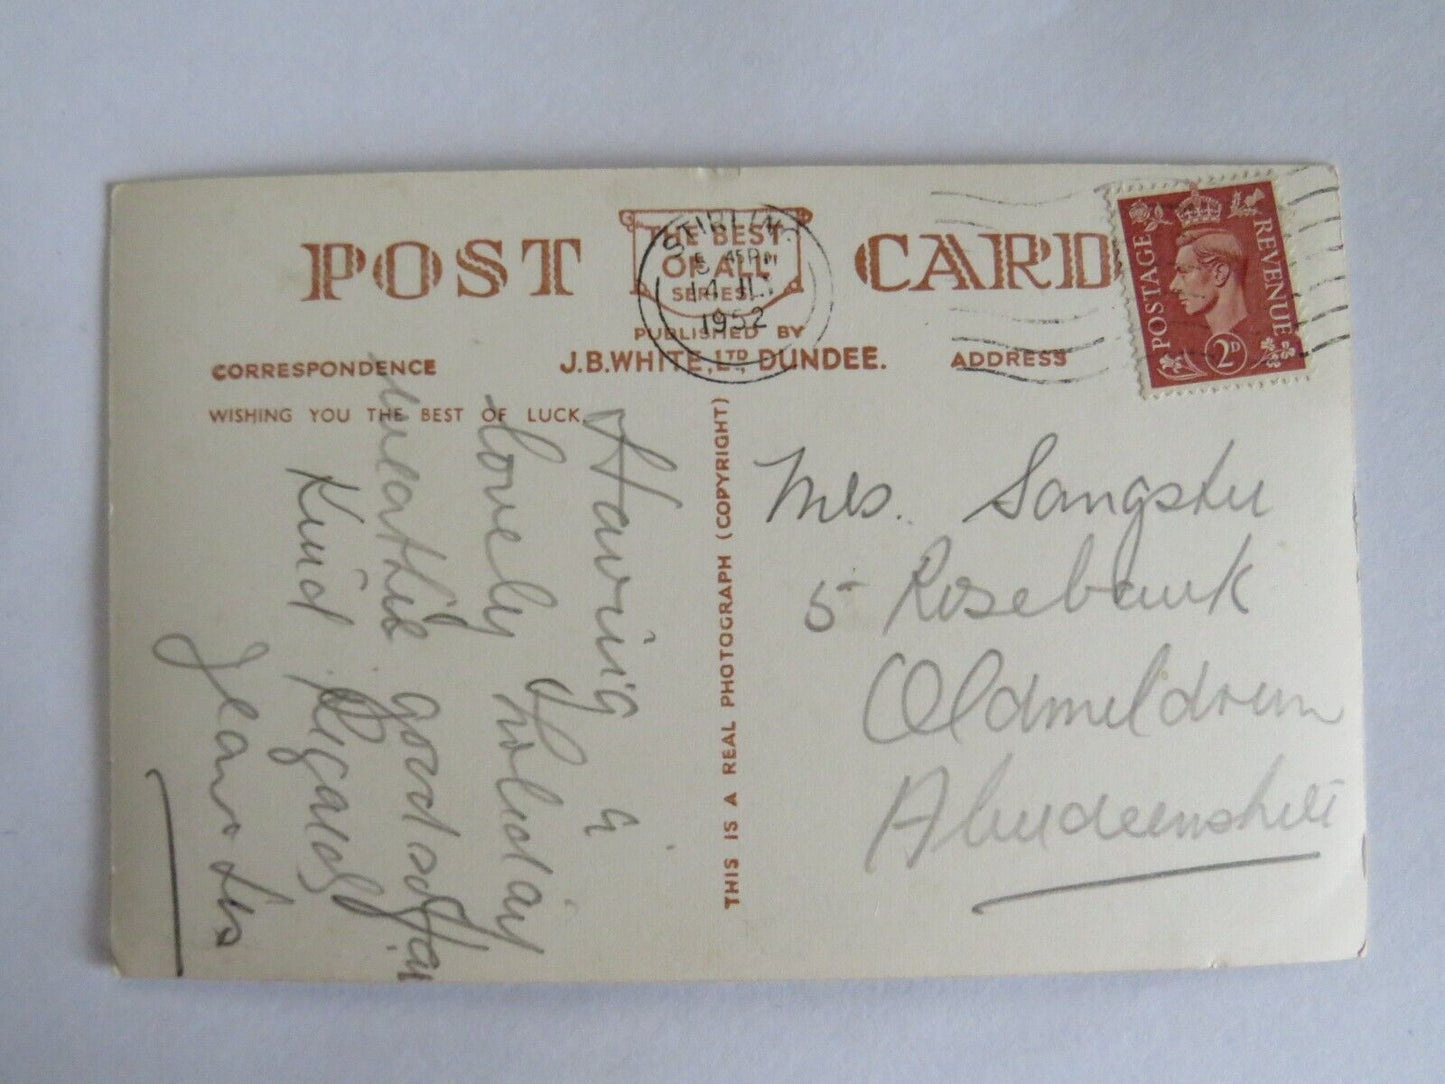 POST CARD
THE BEST
OF ALL
SERIES
PUBLISHED BY
J.B.WHITE, LTD, DUNDEE.
STIRLING
5 45PM
14 JLY
1952
POSTAGE
REVENUE
2D
CORRESPONDENCE
ADDRESS
WISHING YOU THE BEST OF LUCK.
Having a
lovely holiday
weather good so far
Kind Regards
Jean
THIS IS A REAL PHOTOGRAPH (COPYRIGHT)
Mrs. Sangster
5 Rosebank
Oldmeldrum
Aberdeenshire